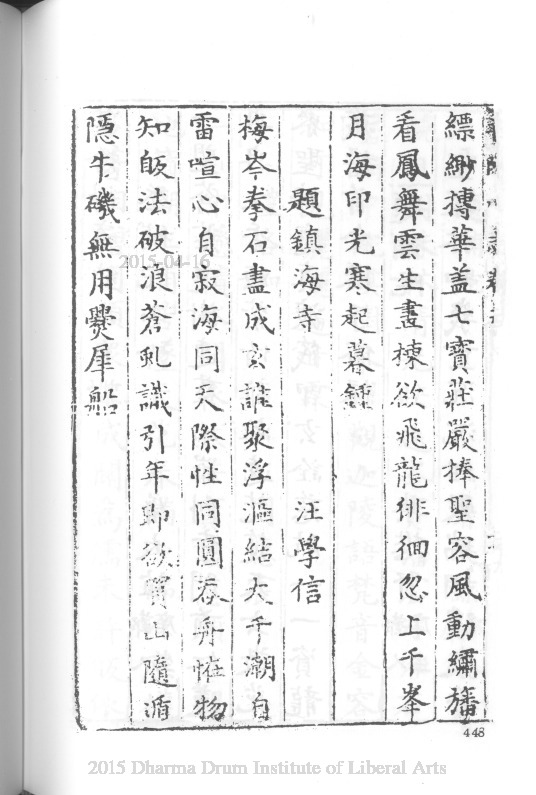 縹緲摶華盖七寶莊嚴捧聖容風動繡旛
看鳳舞雲生畫棟欲飛龍徘徊忽上千峯
月海印光寒起暮鍾
題鎮海寺 汪學信
梅岑拳石盡成玄誰聚浮漚結大千潮自
雷喧心自寂海同天際性同圓吞舟恠物
知皈法破浪蒼虬識引年即欲買山隨遁
隱牛磯無用爨犀船
2015-04-16
448
2015 Dharma Drum Institute of Liberal Arts